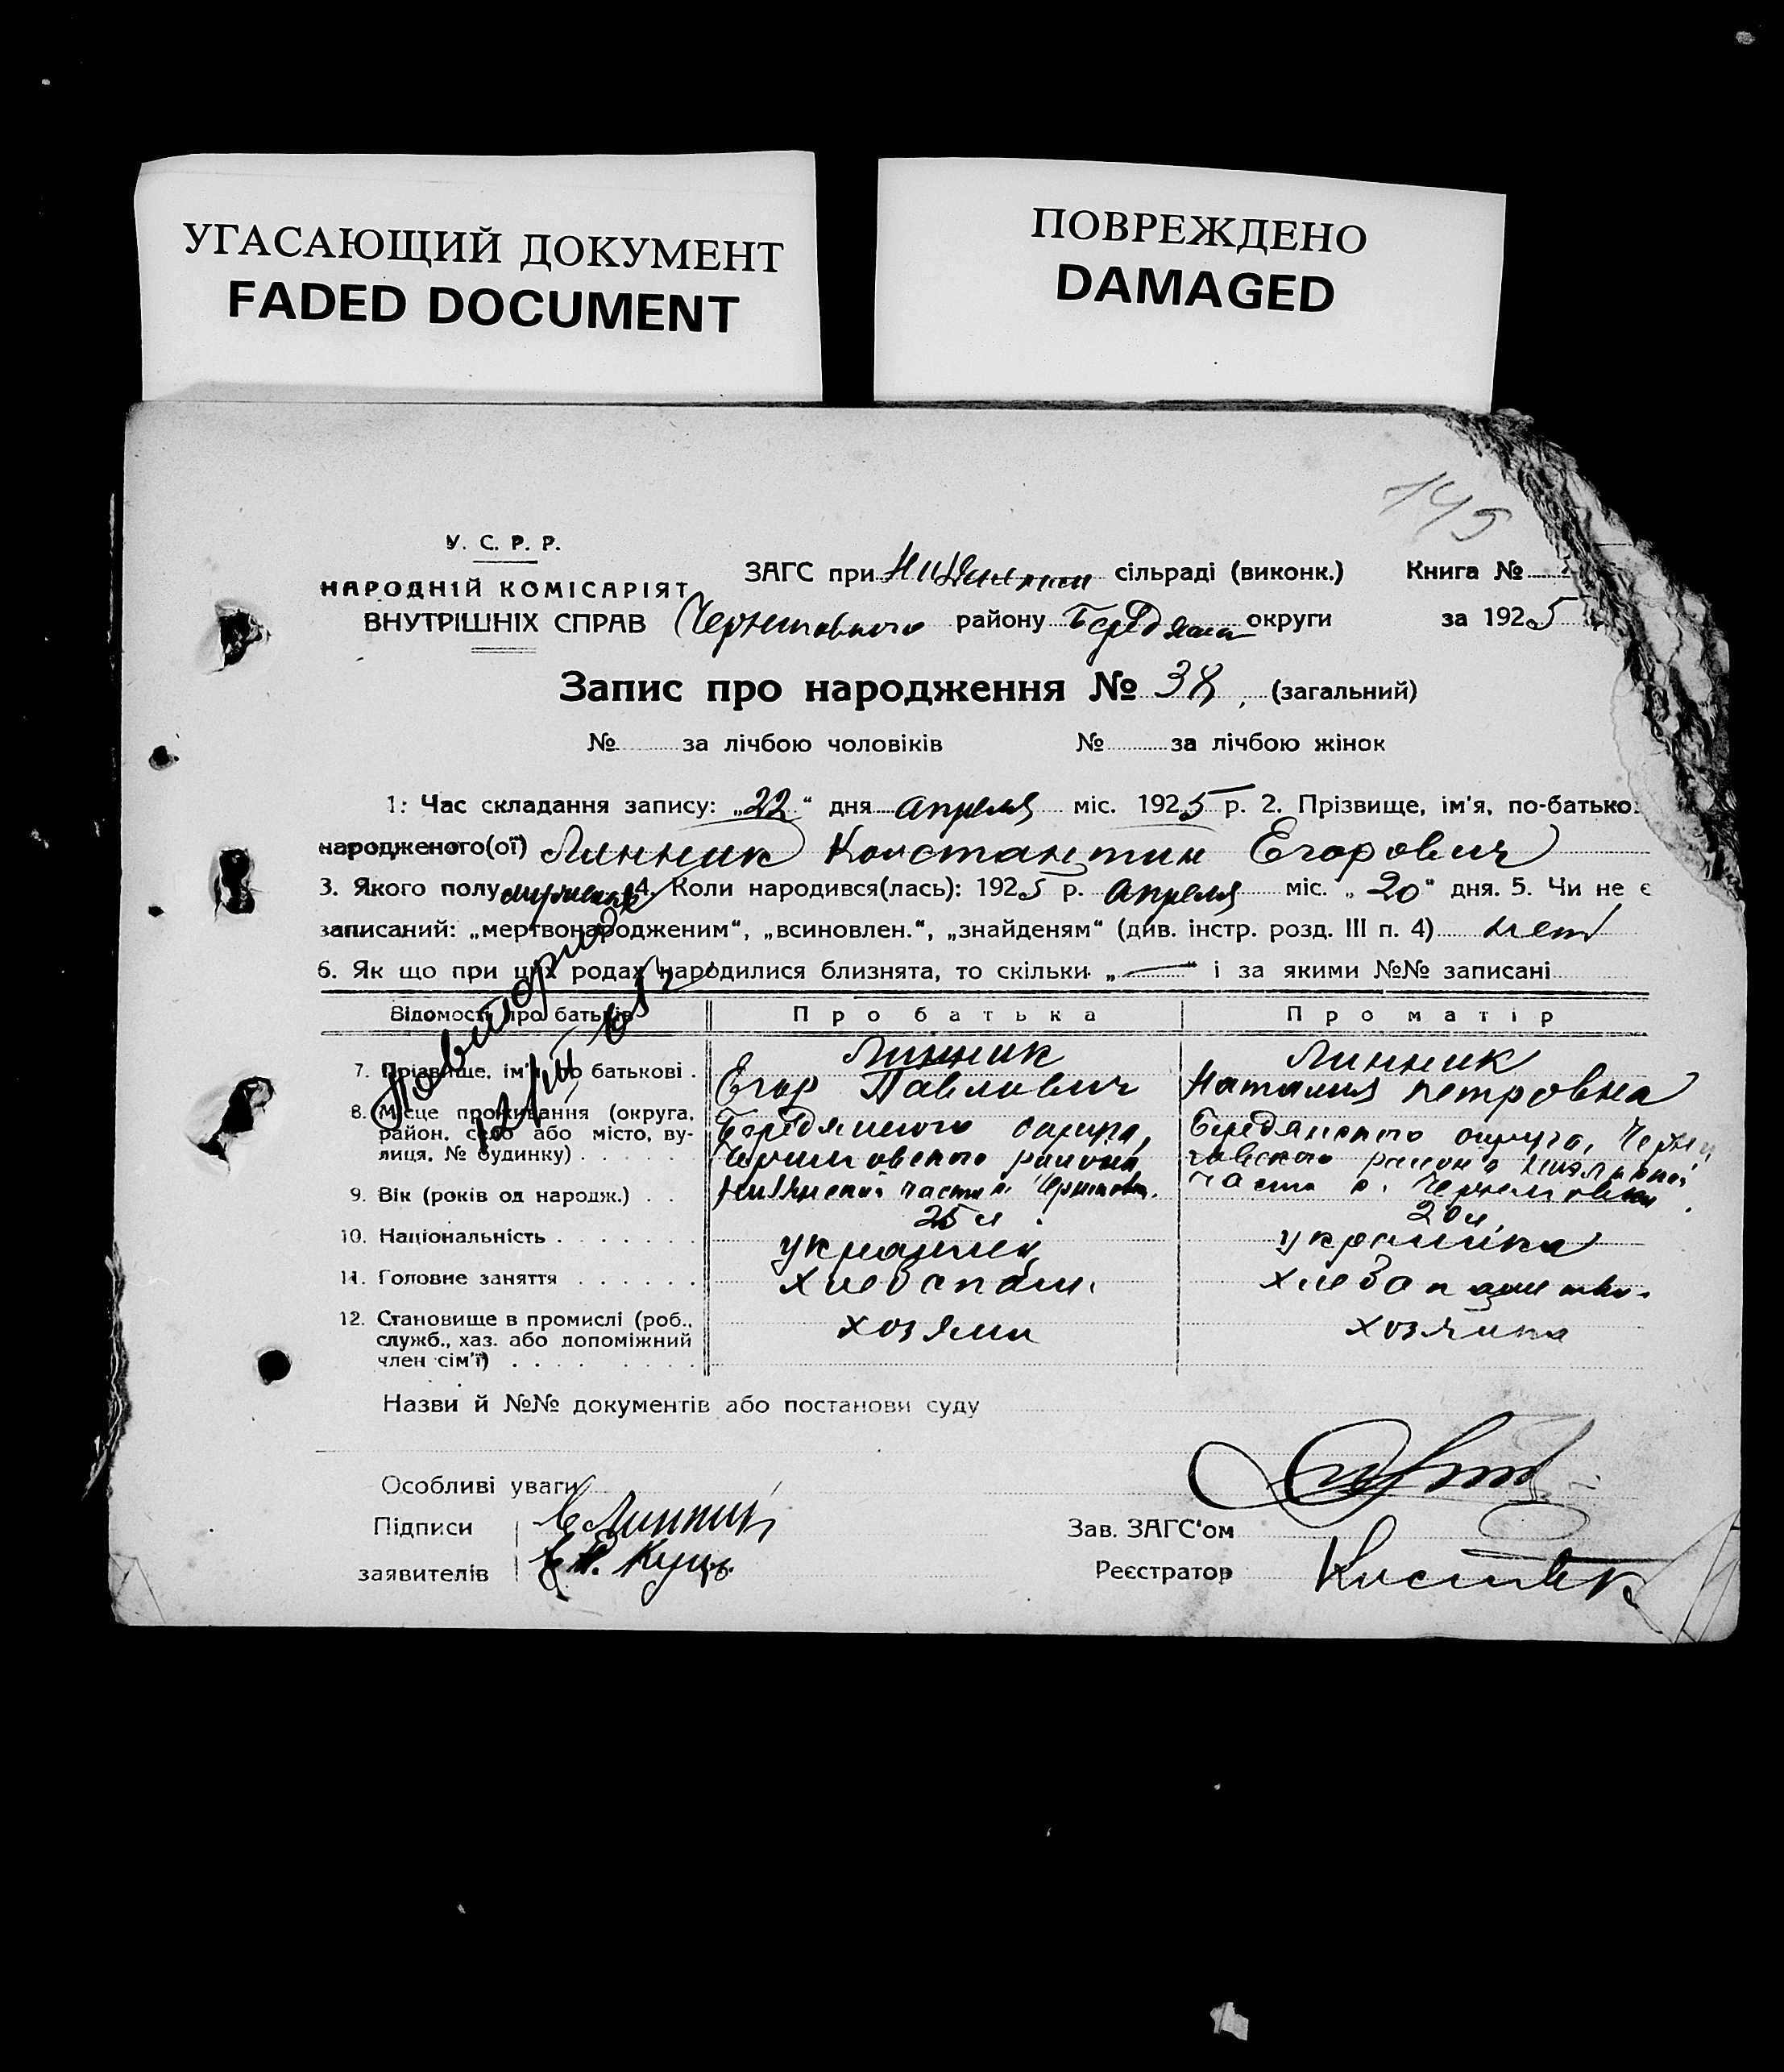 УГАСАЮЩИЙ ДОКУМЕНТ
FADED DOCUMENT
ПОВРЕЖДЕНО
DAMAGED
145
У. С. Р. Р.
НАРОДНІЙ КОМІСАРІЯТ
ВНУТРІШНІХ СПРАВ
ЗАГС при сільраді (виконк.) Книга №
району округи за 1925
Запис про народження № 38, (загальний)
№ за лічбою чоловіків № за лічбою жінок
1. Час складання запису: „22“ дня апреля міс. 1925 р. 2. Прізвище, ім'я, по-батько.
народженого(ої) Линник Константин Егорович
3. Якого полу 4. Коли народився(лась): 1925 р. апреля міс. „20“ дня. 5. Чи не є
записаний: „мертвонародженим“, „всиновлен.“, „знайденям“ (див. інстр. розд. III п. 4) нет
6. Як що при цих родах народилися близнята, то скільки „—“ і за якими №№ записані
Відомості про батьків Про батька Про матір
7. Прізвище, ім'я, по батькові . Линник Егор Павлович Линник Наталия Петровна
8. Місце проживання (округа, район, село або місто, вулиця, № будинку) Бердянского округа, района Бердянского округа, района
9. Вік (років од народж.) . . 25 л. 20 л.
10. Національність . . . . . . . украинец украинка
11. Головне заняття . . . . . . хлебопаш.
12. Становище в промислі (роб., служб., хаз. або допоміжний член сім'ї) . . . . хозяин хозяйка
Назви й №№ документів або постанови суду
Особливі уваги
Підписи Е Линник
заявителів Куць
Зав. ЗАГС'ом
Реєстратор